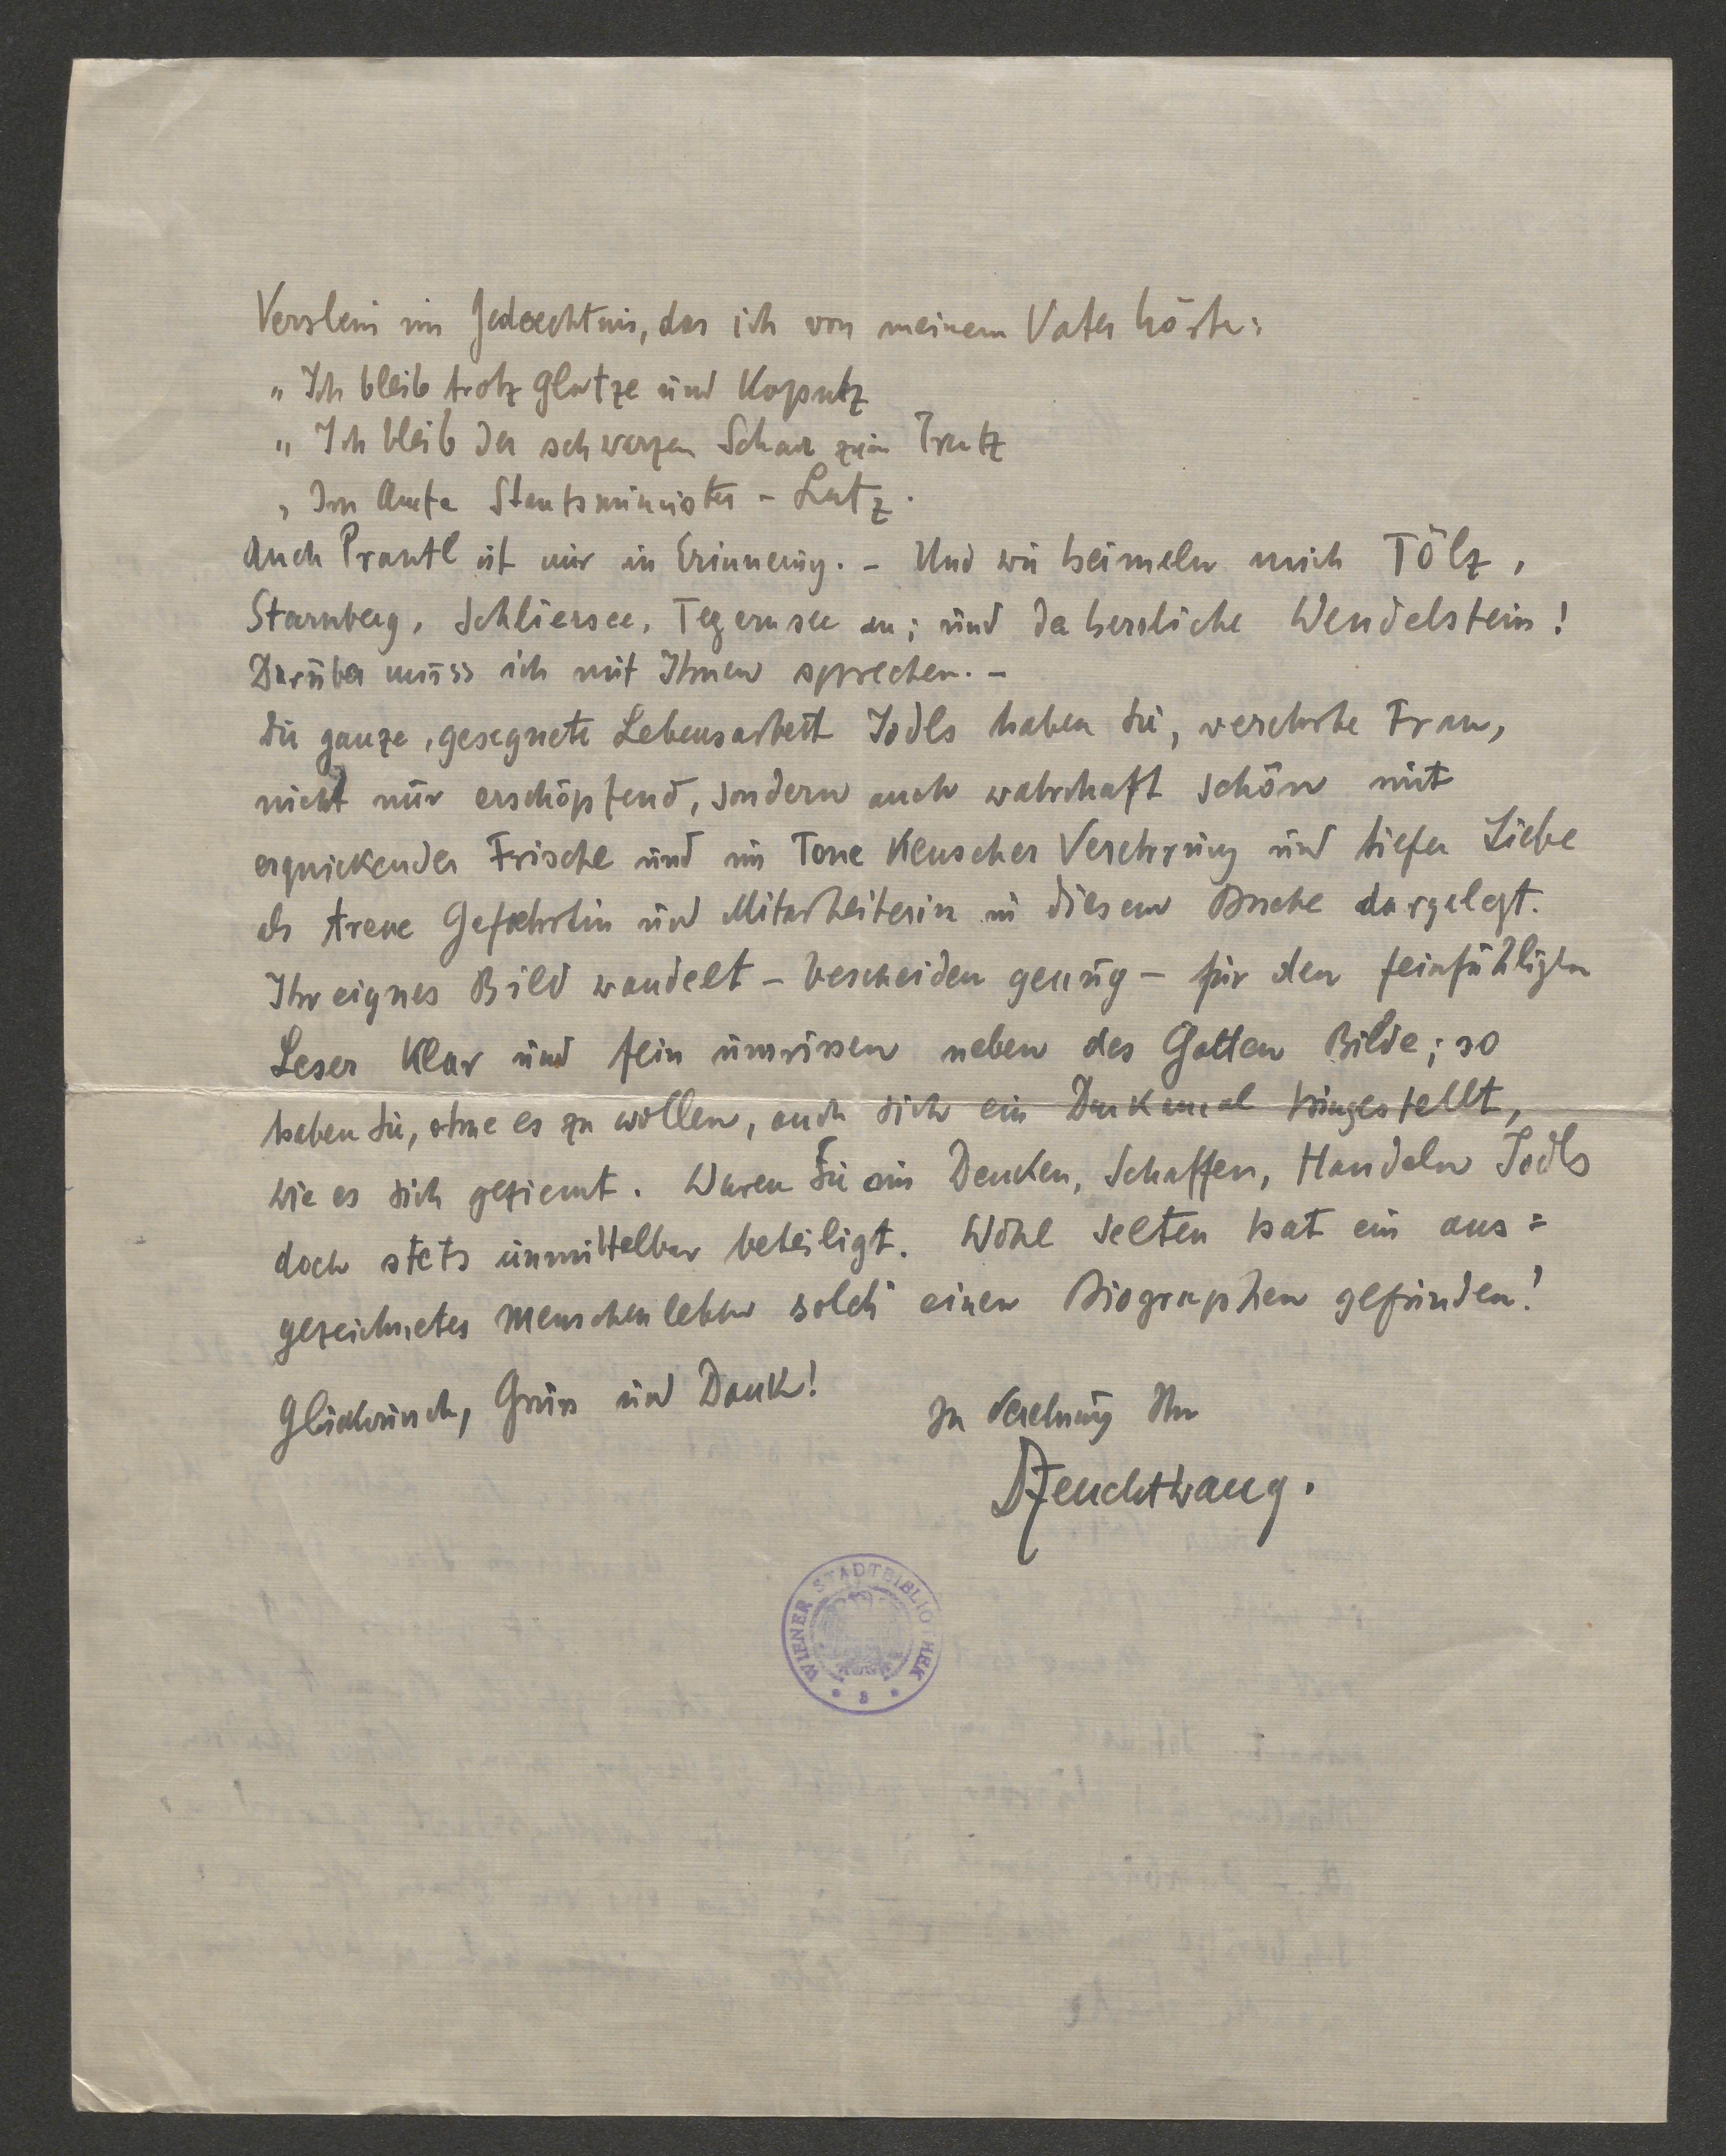 Verslein im Gedaechtnis, das ich von meinem Vater hörte:
„ Ich bleib trotz Glatze und Kaputz
„ Ich bleib der schwarzen Schar zum Trutz
„ Im Amte Staatsminister - Lutz.
Auch Prantl ist mir in Erinnerung. - Und wie heimeln mich Tölz,
Starnberg, Schliersee, Tegernsee an; und der herrliche Wendelstein!
Darüber muss ich mit Ihnen sprechen. -
Die ganze, gesegnete Lebensarbeit Jodls haben Sie, verehrte Frau,
nicht nur erschöpfend, sondern auch wahrhaft schön mit
erquickender Frische und im Tone keuscher Verehrung und tiefer Liebe
als treue Gefaehrtin und Mitarbeiterin in diesem Buche dargelegt.
Ihr eignes Bild wandelt - bescheiden genug - für den feinfühligen
Leser klar und fein umrissen neben des Gatten Bilde; so
haben Sie, ohne es zu wollen, auch sich ein Denkmal hingestellt,
wie es sich geziemt. Waren Sie am Denken, Schaffen, Handeln Jodls
doch stets unmittelbar beteiligt. Wohl selten hat ein aus=
gezeichnetes Menschenleben solch' einen Biographen gefunden!
Glückwunsch, Gruss und Dank!
In Verehrung Ihr
DFeuchtwang.
WIENER STADTBIBLIOTHEK